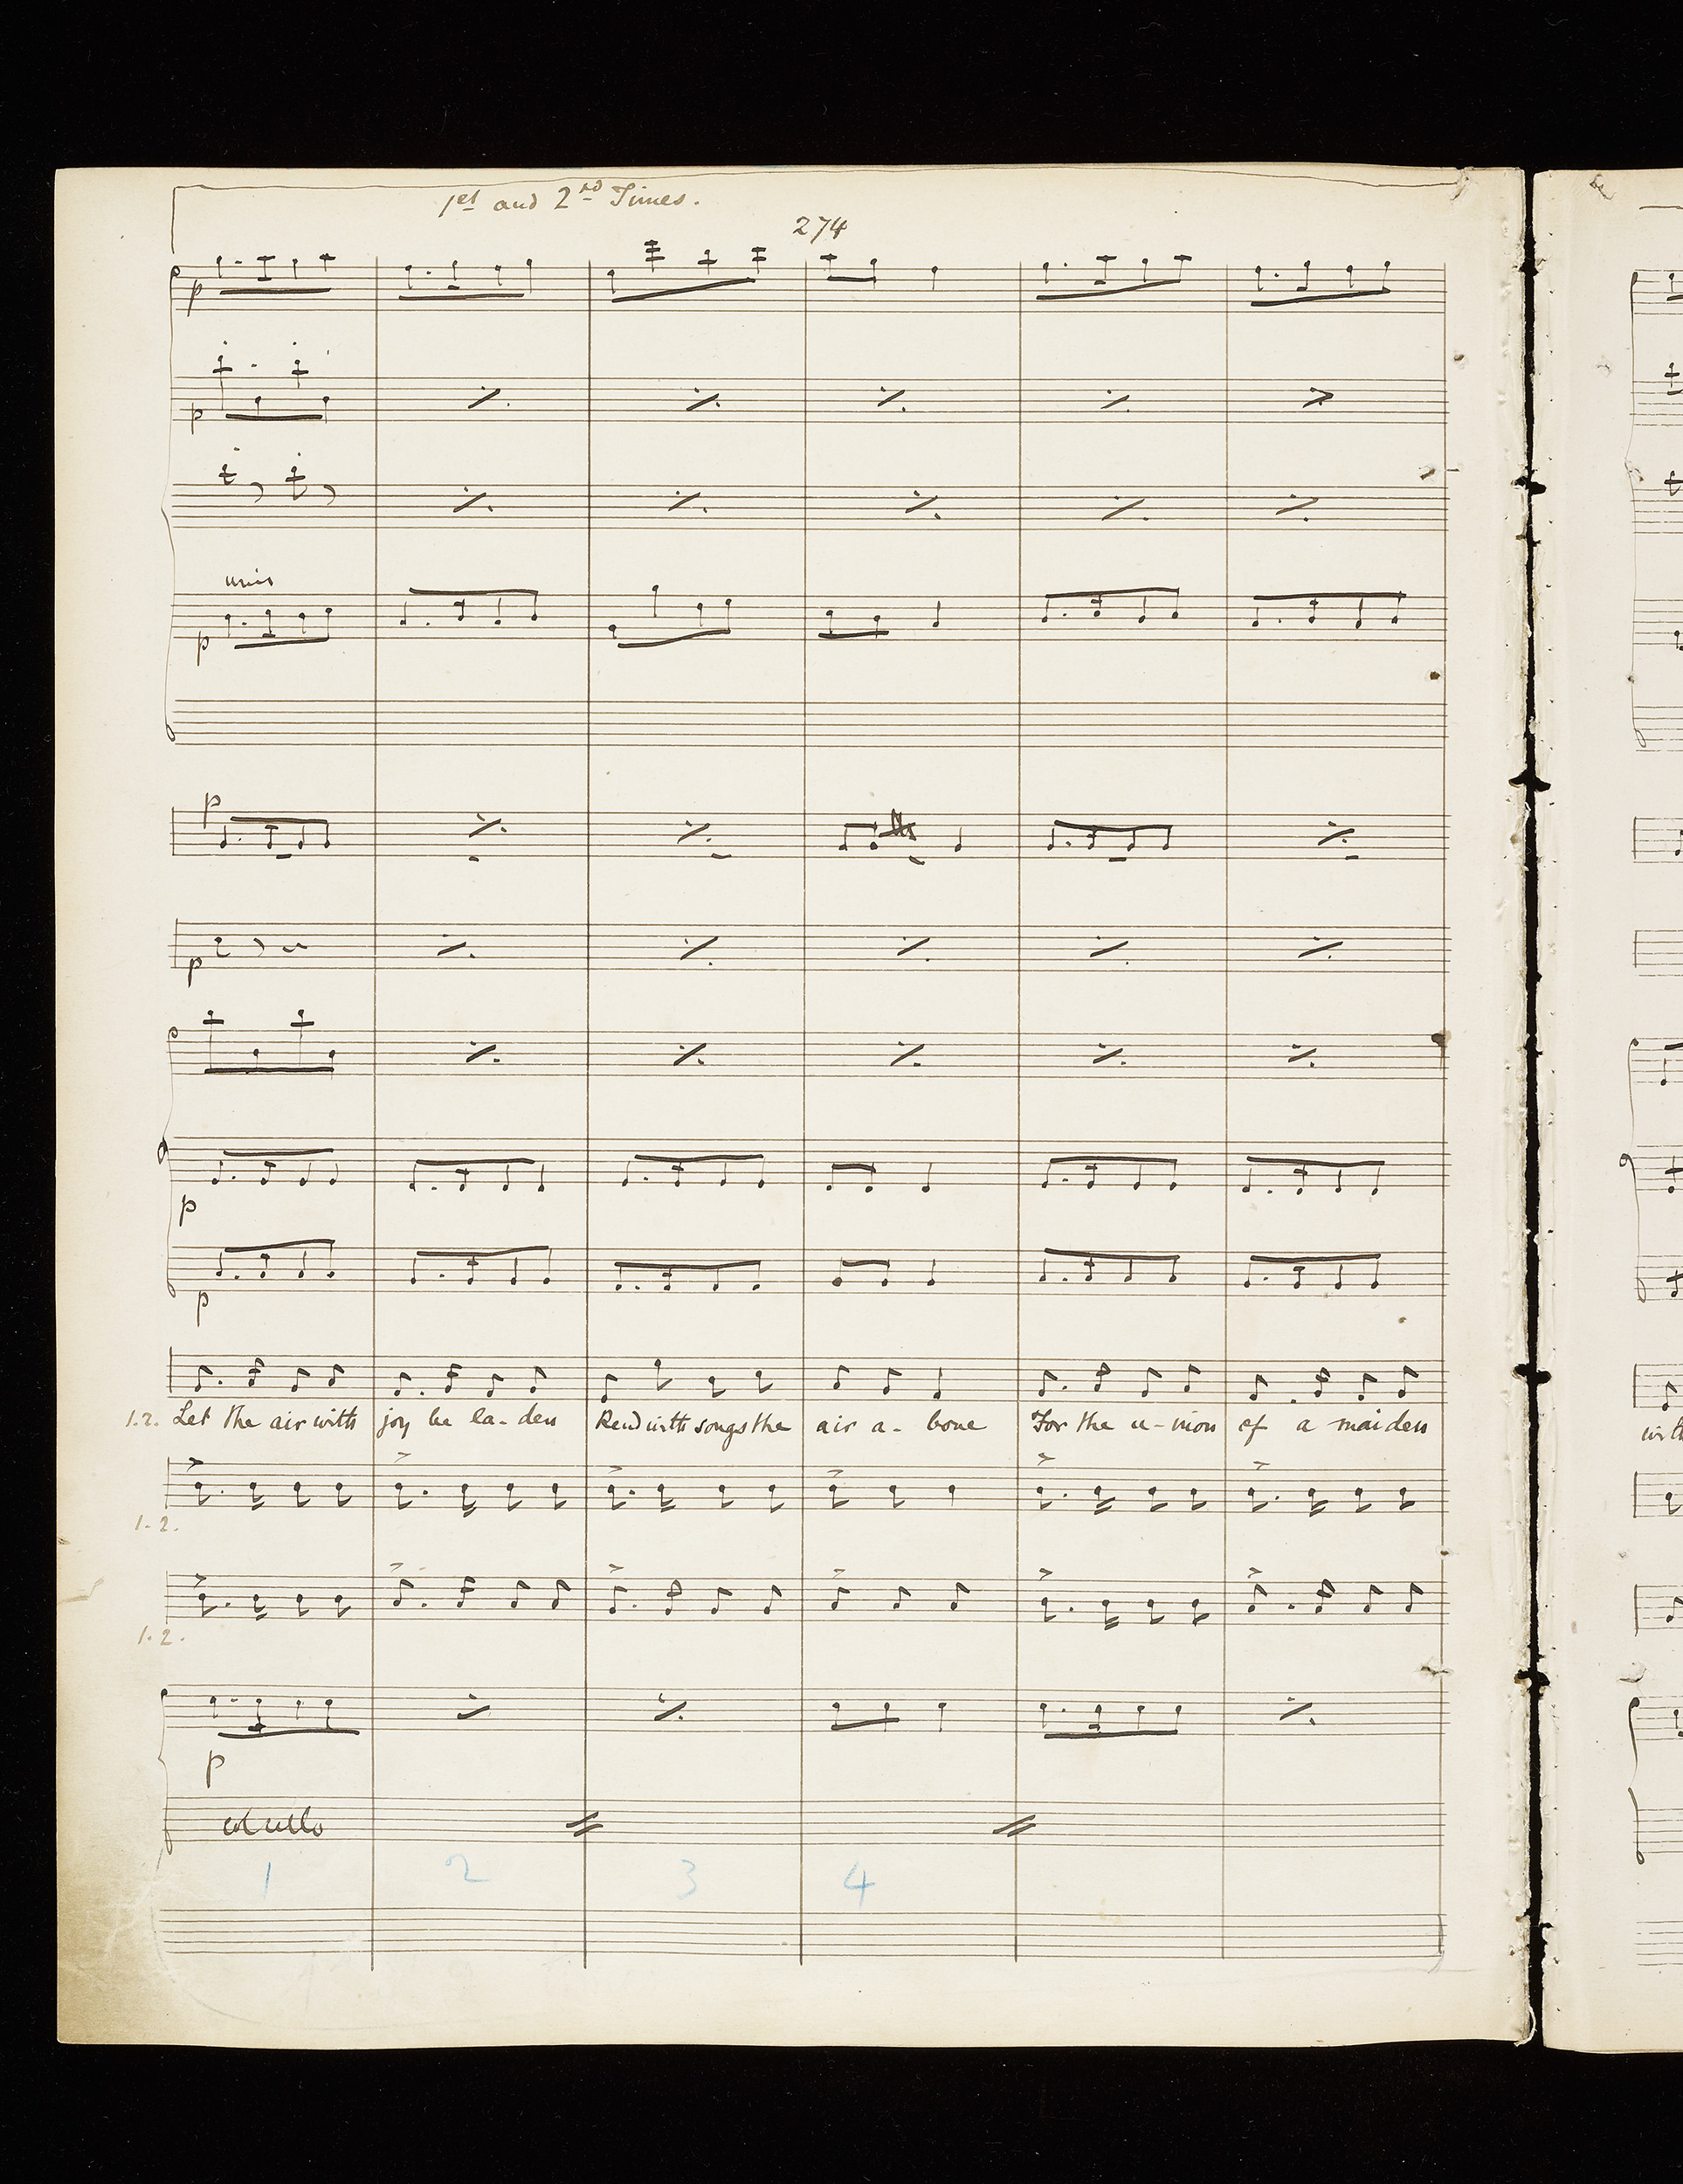 1st and 2nd Times.
274
p
p
unis
p
p
p
p
p
1.2. Let the air with joy be la-den Rend with songs the air a-bove For the u-nion of a maiden
with
1.2.
1.2.
p
col cello
1 2 3 4